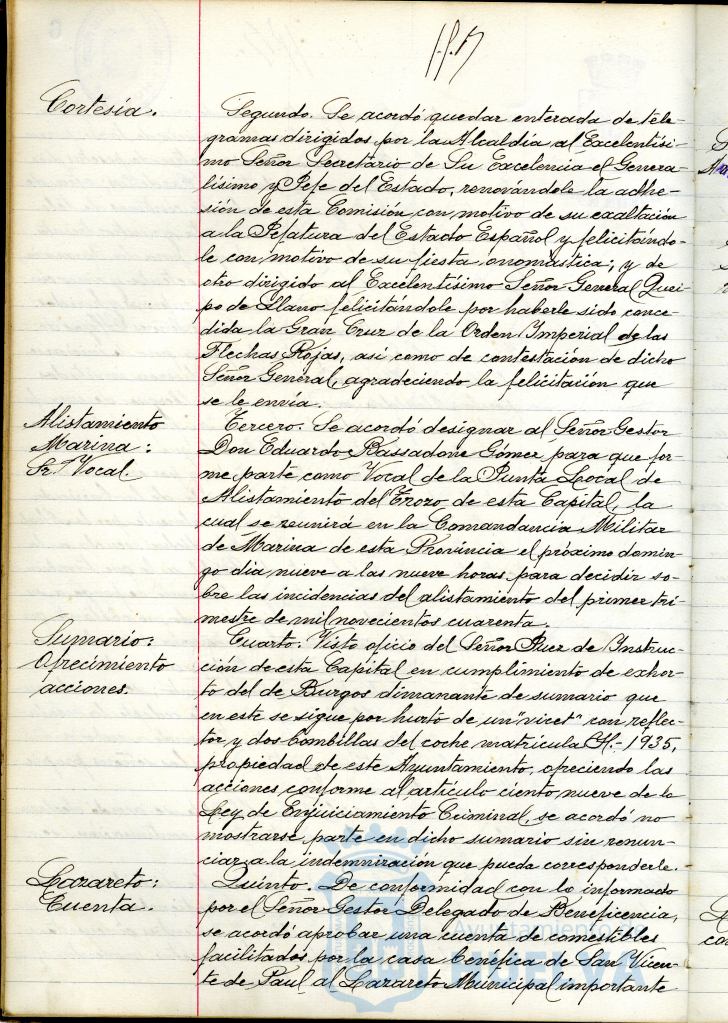 Cortesía.
Segundo. Se acordó quedar enterada de tele-
gramas dirigidos por la Alcaldía al Excelentísi-
mo Señor Secretario de Su Excelencia el Genera-
lísimo y Jefe del Estado, renovándole la adhe-
sión de esta Comisión con motivo de su exaltación
a la Jefatura del Estado Español y felicitándo-
le con motivo de su fiesta onomástica; y de
otro dirigido al Excelentísimo Señor General Quei-
po de Llano felicitándole por haberle sido conce-
dida la Gran Cruz de la Orden Imperial de las
Flechas Rojas, así como de contestación de dicho
Señor General, agradeciendo la felicitación que
se le envía.
Alistamiento
Marina:
Sr. Vocal
Tercero. Se acordó designar al Señor Gestor
Don Eduardo Bassadone Gómez para que for-
me parte como Vocal de la Junta Local de
Alistamiento del Trozo de esta Capital, la
cual se reunirá en la Comandancia Militar
de Marina de esta Provincia el próximo domin-
go día nueve a las nueve horas para decidir so-
bre las incidencias del alistamiento del primer tri-
mestre de mil novecientos cuarenta.
Sumario:
Ofrecimiento
acciones.
Cuarto. Visto oficio del Señor Juez de Instruc-
ción de esta Capital en cumplimiento de exhor-
to del de Burgos dimanante de sumario que
en este se sigue por hurto de un "vicet" con reflec-
tor y dos bombillas del coche matrícula H.-1935,
propiedad de este Ayuntamiento, ofreciendo las
acciones conforme al artículo ciento nueve de la
Ley de Enjuiciamiento Criminal, se acordó no
mostrarse parte en dicho sumario sin renun-
ciar a la indemnización que pueda corresponderle.
Lazareto:
Cuenta.
Quinto. De conformidad con lo informado
por el Señor Gestor Delegado de Beneficencia,
se acordó aprobar una cuenta de comestibles
facilitados por la casa benéfica de San Vicen-
te de Paul al Lazareto Municipal importante
Ayuntamiento de
HUELVA